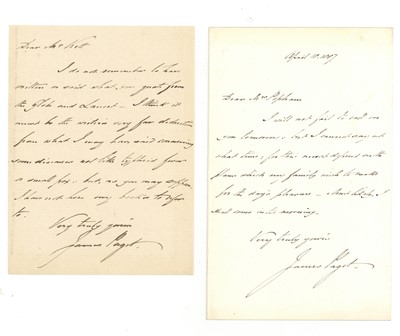 Dear Mr Kett
I do not remember to have
written or said what you quote from
the Globe and Lancet - I think it
must be the writer's very fair deduction
from what I may have said concerning
some diseases not like typhoid fever
or small pox: but, as you may suppose,
I have not here any books to refer
to.
Very truly yours
James Paget.
April 10. 1887
Dear Mrs Popham
I will not fail to call on
you tomorrow; but I cannot say at
what time; for this must depend on the
plans which my family wish to make
for the day's pleasure - I
shall come in the morning.
Very truly yours
James Paget.